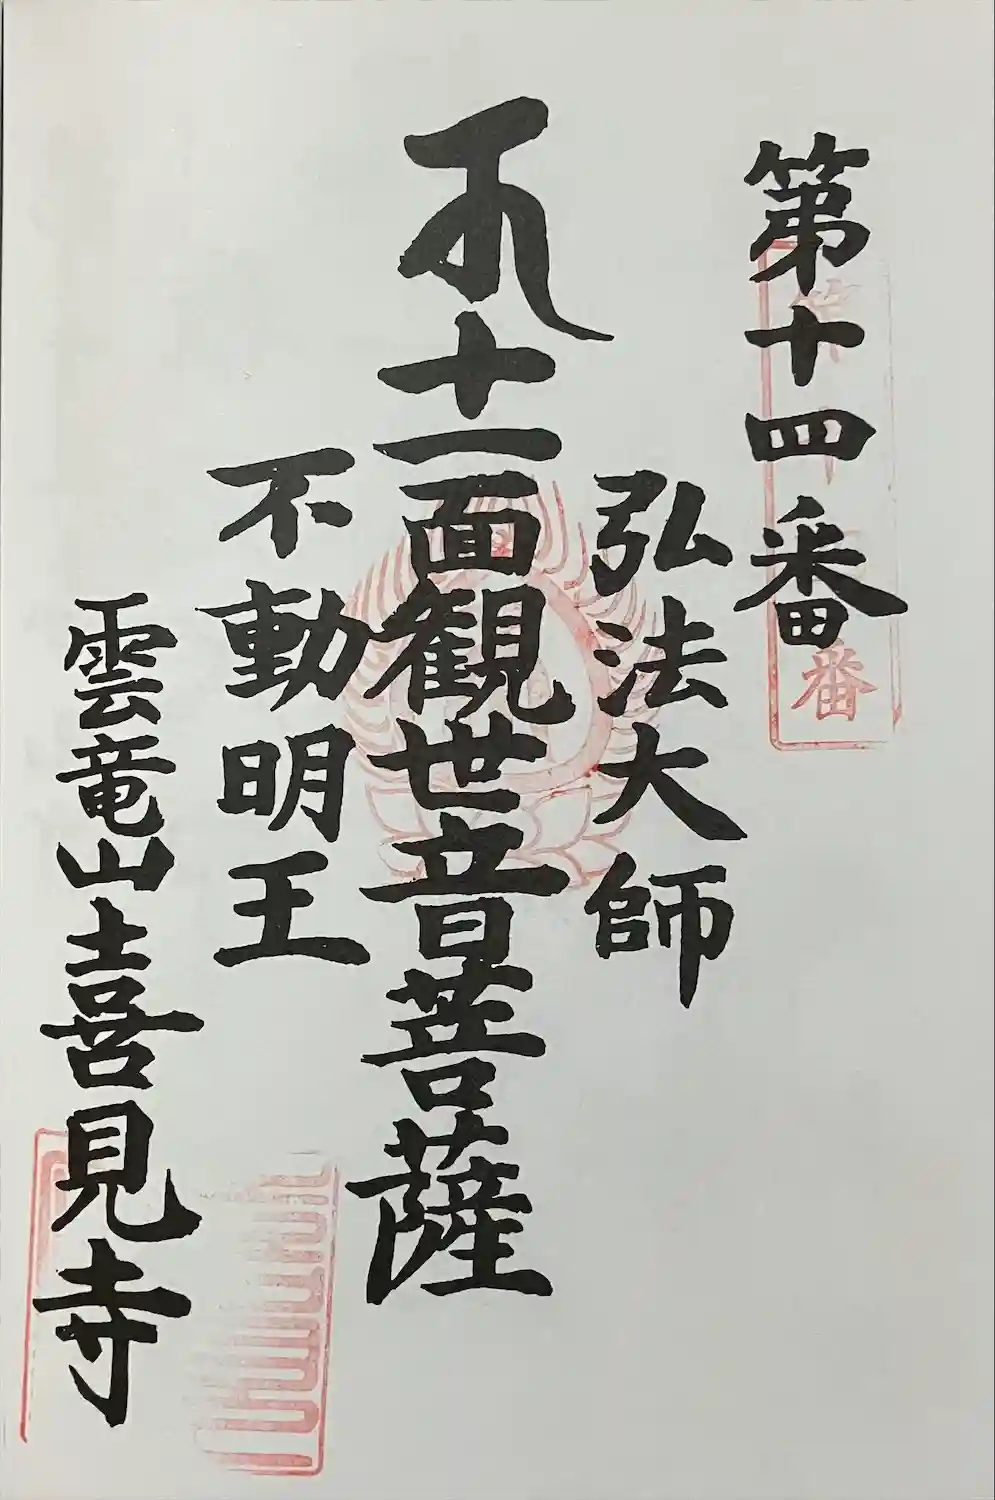 第十四番
弘法大師
十一面観世音菩薩
不動明王
雲竜山喜見寺
番